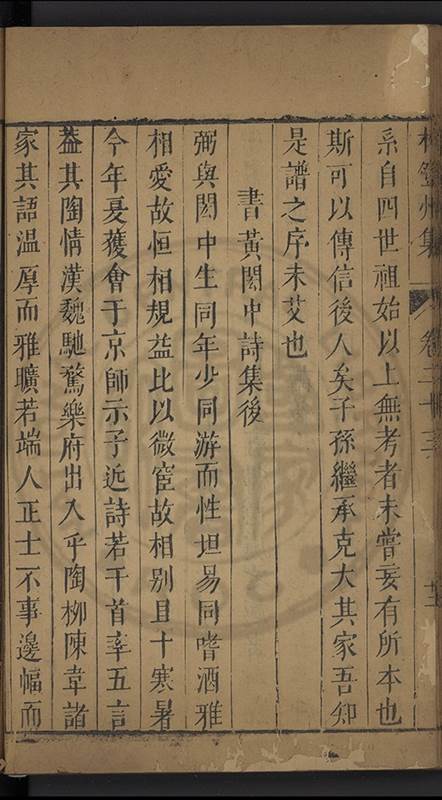 系自四世祖始以上無考者未嘗妄有所本也
斯可以傳信後人矣子孫繼承克大其家吾卹
是譜之序未艾也
書黃閎中詩集後
弼與閎中生同年少同游而性坦易同嗜酒雅
相愛故恒相規益比以微宦故相別且十寒暑
今年夏獲會于京師示予近詩若干首率五言
葢其陶情漢魏馳騖樂府出入乎陶柳陳韋諸
家其語溫厚而雅曠若端人正士不事邊幅而